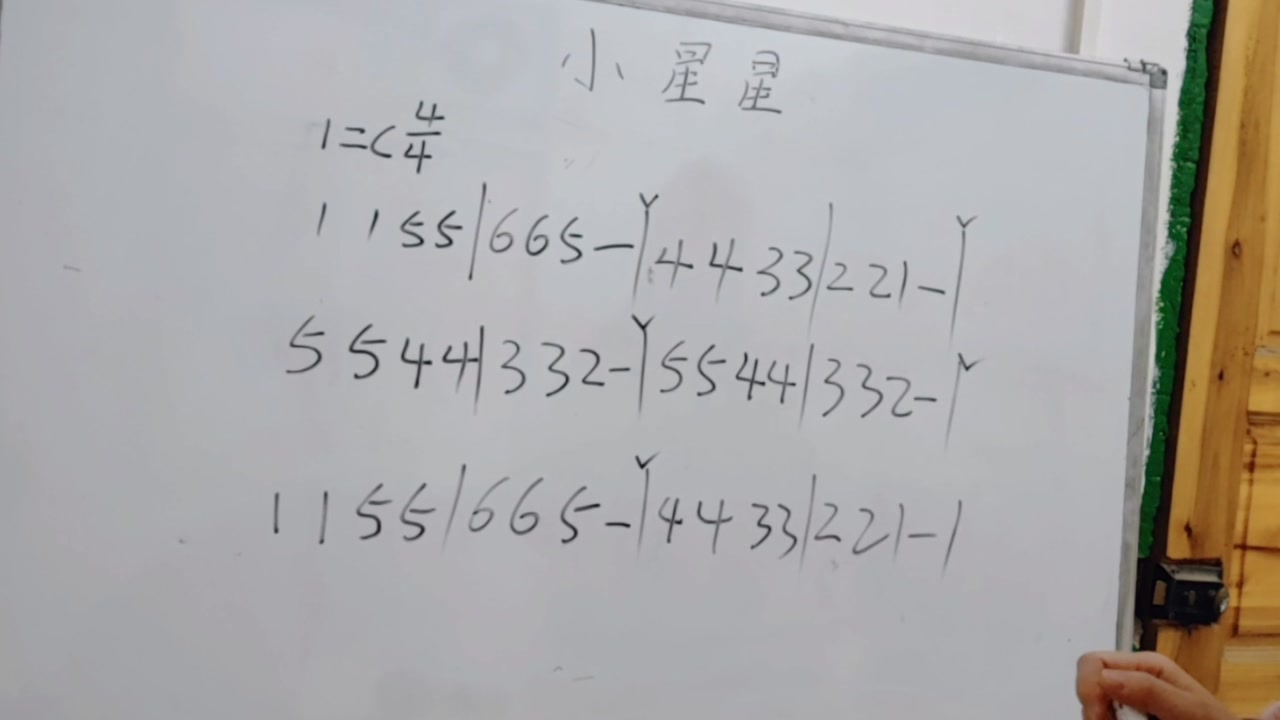 小星星
1=C 4/4
1 1 5 5 | 6 6 5 - | 4 4 3 3 | 2 2 1 - |
5 5 4 4 | 3 3 2 - | 5 5 4 4 | 3 3 2 - |
1 1 5 5 | 6 6 5 - | 4 4 3 3 | 2 2 1 - |